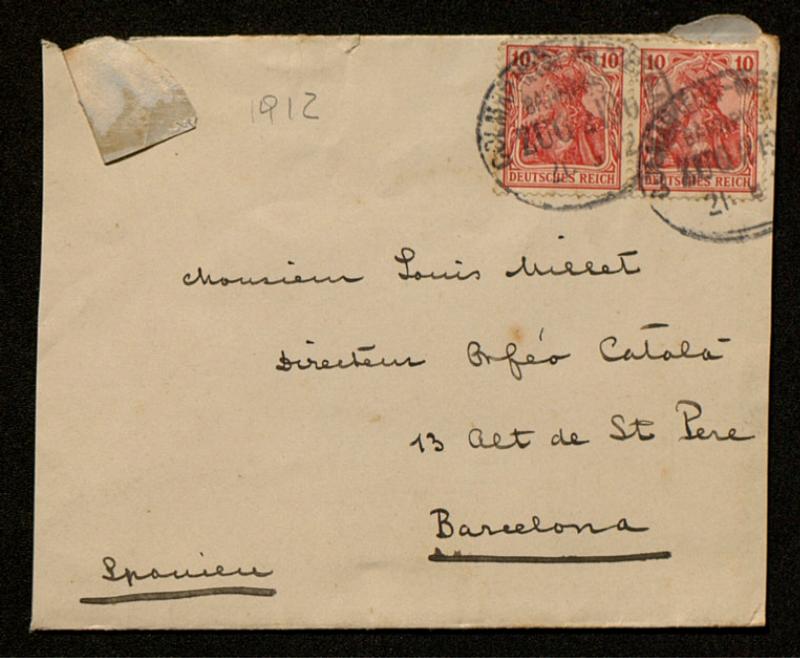 1912
10 10 10 10
DEUTSCHES REICH DEUTSCHES REICH
ZUG
Monsieur Louis Millet
Directeur Orféo Català
13 Alt de St Pere
Barcelona
Spanien